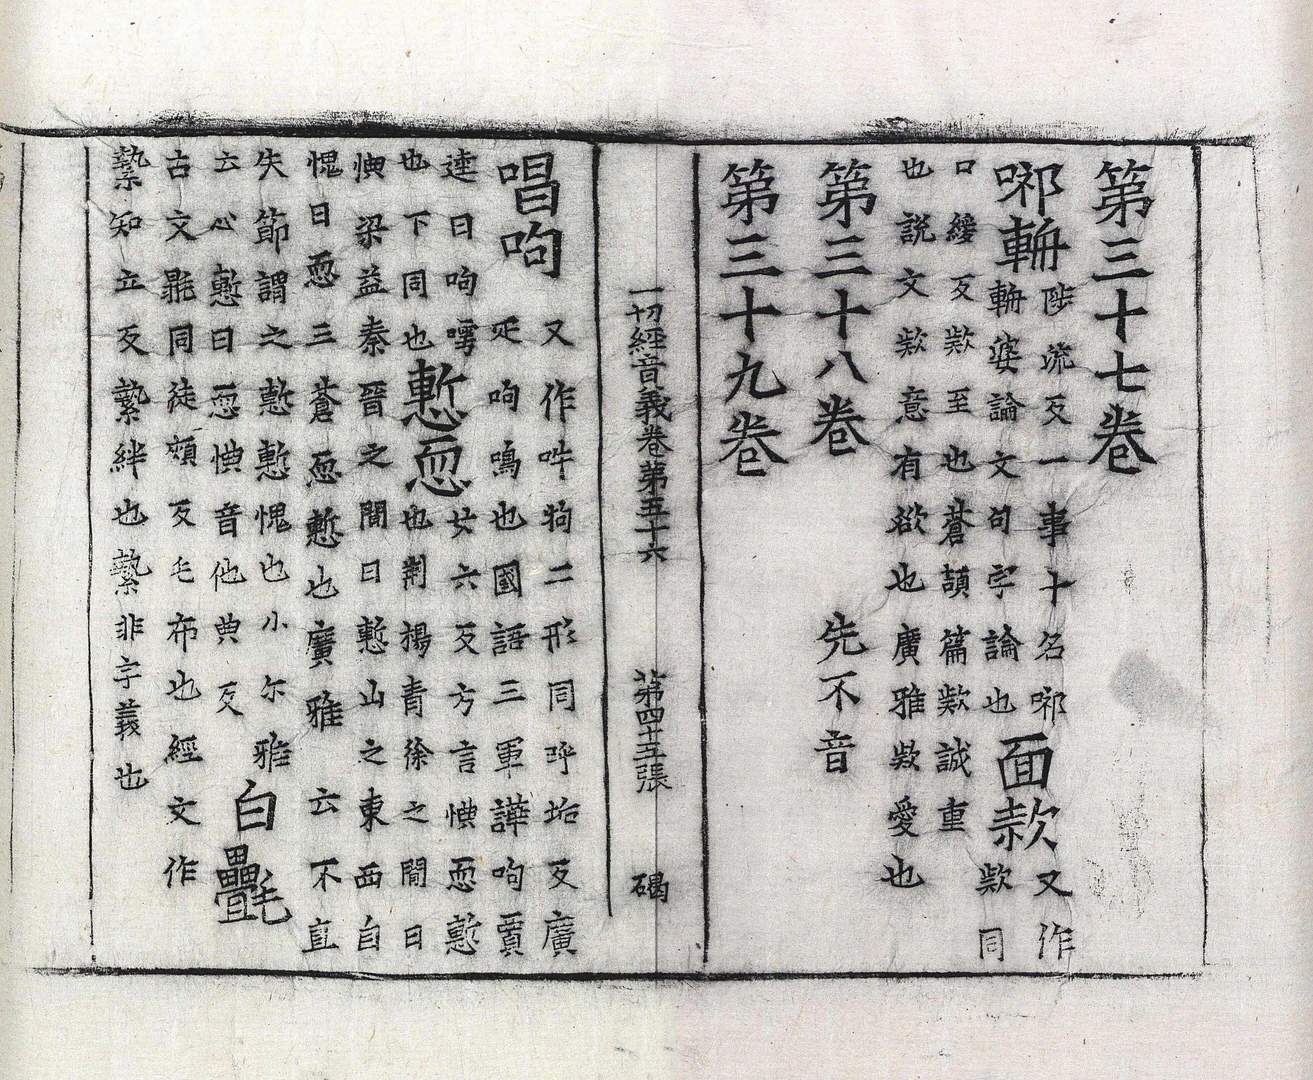 第三十七卷
㖿輧陟流反一事十名㖿
輧婆論文句字論也面款又作
欵同
口緩反欵至也蒼頡篇欵誠重
也說文欵意有欲也廣雅欵愛也
第三十八卷 先不音
第三十九卷
一切經音義卷第五十六 第四十五張 碣
唱呴又作吽狗二形同呼垢反廣
疋呴鳴也國語三軍譁呴賈
逵曰呴嘑
也下同也慙恧女六反方言㥏恧慙
也荆揚青徐之間曰
㥏梁益秦晉之間曰慙山之東西自
愧曰恧三蒼恧慙也廣雅云不直
失節謂之慙慙愧也小尔雅
云心慙曰恧㥏音他典反白㲲
古文㲲同徒頰反毛布也經文作
縶知立反縶絆也縶非字義也